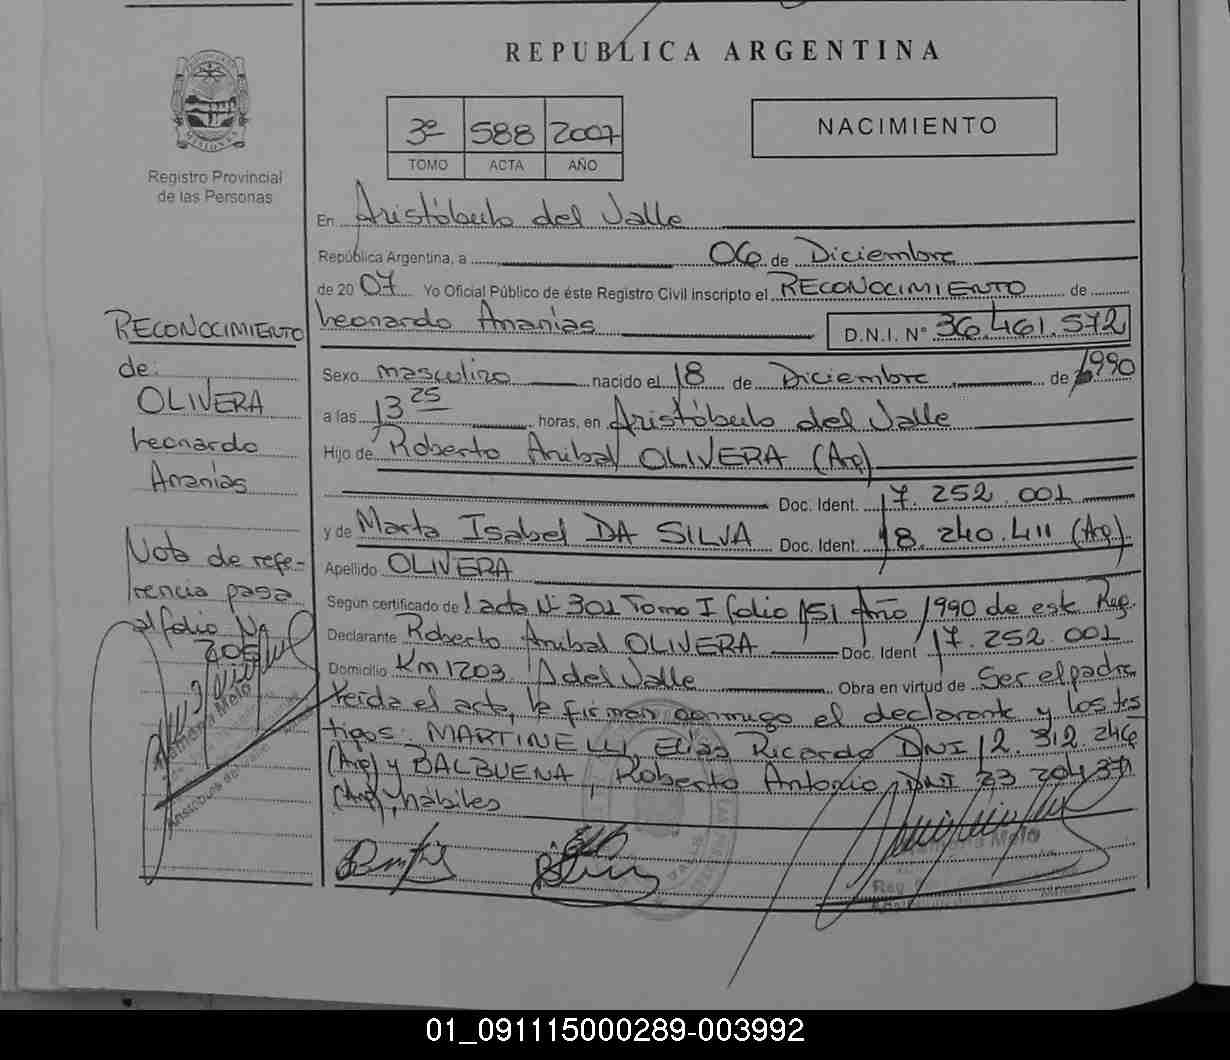 REPUBLICA ARGENTINA
3º 588 2007
TOMO ACTA AÑO
NACIMIENTO
MISIONES
Registro Provincial
de las Personas
En Aristóbulo del Valle
República Argentina, a 06 de Diciembre
de 2007 Yo Oficial Público de éste Registro Civil inscripto el RECONOCIMIENTO de
Leonardo Ananías D.N.I. Nº 36.461.572
Sexo masculino nacido el 18 de Diciembre de 1990
a las 13 25 horas, en Aristóbulo del Valle
Hijo de Roberto Anibal OLIVERA (Arg)
Doc. Ident. 17.252.001
y de Marta Isabel DA SILVA Doc. Ident. 18.240.411 (Arg)
Apellido OLIVERA
Según certificado de 1 acta Nº 301 Tomo I folio 151 Año 1990 de este Reg.
Declarante Roberto Anibal OLIVERA Doc. Ident 17.252.001
Domicilio Km 1203. A del Valle Obra en virtud de Ser el padre
Leída el acta, la firman conmigo el declarante y los tes
tigos: MARTINELLI, Elías Ricardo DNI 12.312.246
(Arg) y BALBUENA, Roberto Antonio, DNI 23 204 371
(Arg), hábiles
RECONOCIMIENTO
de:
OLIVERA
Leonardo
Ananías
Nota de refe-
rencia pasa
al folio Nº
205
Ramona Melo
Aristóbulo del Valle
Ramona Melo
01_091115000289-003992